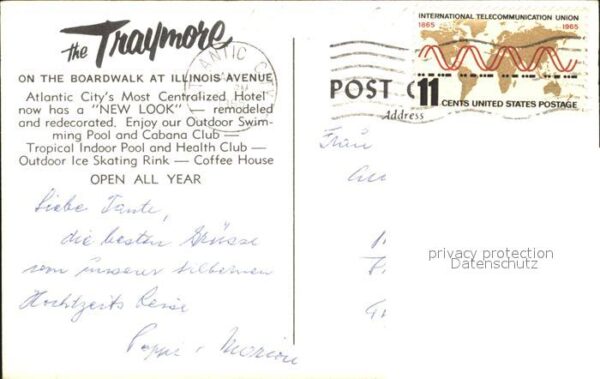 the Traymore
ON THE BOARDWALK AT ILLINOIS AVENUE
Atlantic City's Most Centralized Hotel
now has a "NEW LOOK" — remodeled
and redecorated. Enjoy our Outdoor Swim-
ming Pool and Cabana Club —
Tropical Indoor Pool and Health Club —
Outdoor Ice Skating Rink — Coffee House
OPEN ALL YEAR
Liebe Tante,
die besten Grüsse
von unserer silbernen
Hochtzeits Reise
Marion
ATLANTIC CITY
INTERNATIONAL TELECOMMUNICATION UNION
1865 1965
11 CENTS UNITED STATES POSTAGE
POST C
Address
Frau
privacy protection
Datenschutz